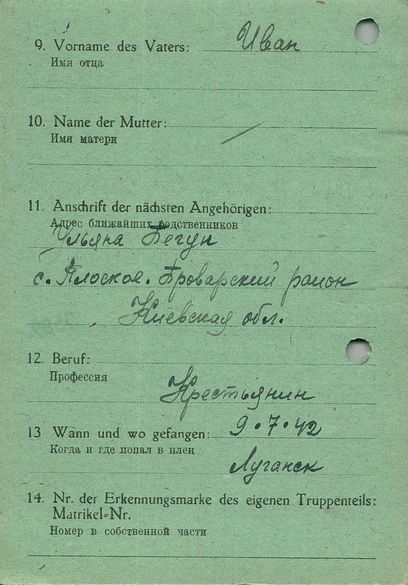 9. Vorname des Vaters: Иван
Имя отца
10. Name der Mutter: —
Имя матери
11. Anschrift der nächsten Angehörigen:
Адрес ближайших родственников
Ульяна Бегун
с. Плоское. Броварский район
Киевская обл.
12. Beruf:
Профессия
Крестьянин
13 Wann und wo gefangen: 9.7.42
Когда и где попал в плен
Луганск
14. Nr. der Erkennungsmarke des eigenen Truppenteils:
Matrikel-Nr.
Номер в собственной части